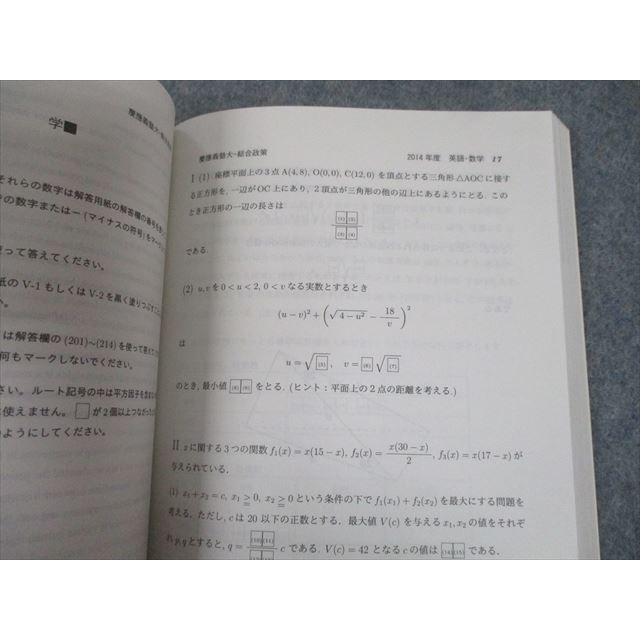 学■
それらの数字は解答用紙の解答欄の番号を
の数字または−(マイナスの符号)をマーク
使って答えてください。
紙の V-1 もしくは V-2 を黒く塗りつぶす
は解答欄の (201)~(214) を使って
何もマークしないでください。
さい。ルート記号の中は平方因子を
は使えません。□が2個以上つながった
のようにしてください。
慶應義塾大-総合政策
2014 年度 英語・数学 17
I (1) 座標平面上の3点 A(4, 8), O(0, 0), C(12, 0) を頂点とする三角形 △AOC に接す
る正方形を, 一辺が OC 上にあり, 2 頂点が三角形の他の辺上にあるようにとる. この
とき正方形の一辺の長さは
(1)(2)
(3)(4)
である.
(2) u, v を 0 < u < 2, 0 < v なる実数とするとき
(u − v)² + (√4 − u² − 18/v)²
は
u = √(5), v = (6)√(7)
のとき, 最小値 (8)(9) をとる. (ヒント:平面上の2点の距離を考える.)
II x に関する3つの関数 f₁(x) = x(15 − x), f₂(x) = x(30 − x)/2, f₃(x) = x(17 − x) が
与えられている.
(1) x₁ + x₂ = c, x₁ ≧ 0, x₂ ≧ 0 という条件の下で f₁(x₁) + f₂(x₂) を最大にする問題を
考える. ただし, c は 20 以下の正数とする. 最大値 V(c) を与える x₁, x₂ の値をそれぞ
れ p, q とすると, q = (10)(11) c である. V(c) = 42 となる c の値は (14)(15) である.